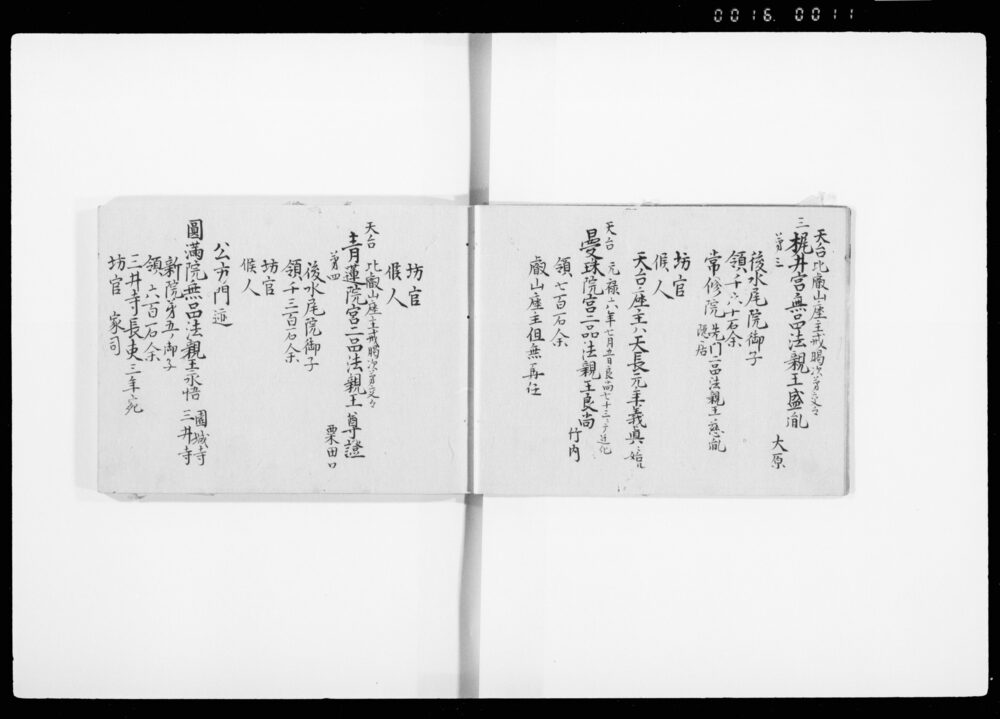 0016 0011
天台比叡山座主戒﨟次第交々
三梶井宮無品法親王盛胤 大原
第三
後水尾院御子
領千六十石余
常修院先門二品法親王慈胤
隠居
坊官
候人
天台座主ハ天長元年義真始
天台 元禄六年七月五日良尚七十二才遷化
曼珠院宮二品法親王良尚 竹内
領七百石余
叡山座主但無再任
坊官
候人
天台 比叡山座主戒﨟次第交々
青蓮院宮二品法親王尊證 粟田口
第四
後水尾院御子
領千三百石余
坊官
候人
公方門跡
圓満院無品法親王永悟 園城寺
三井寺
新院第五ノ御子
領六百石余
三井寺長吏三年宛
坊官 家司